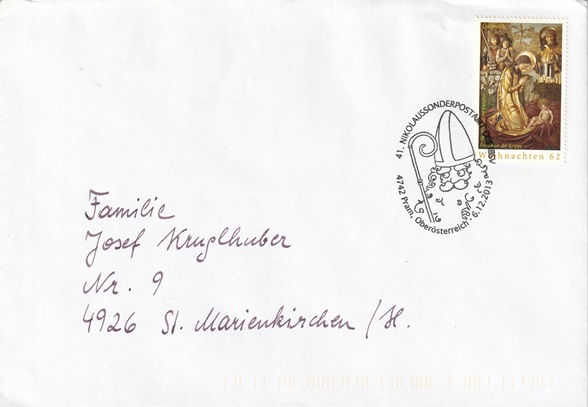 Weihnachten 62
41. NIKOLAUSSONDERPOSTAMT
4742 Pram, Oberösterreich · 6.12.2013
Familie
Josef Kruglhuber
Nr. 9
4926 St. Marienkirchen /H.